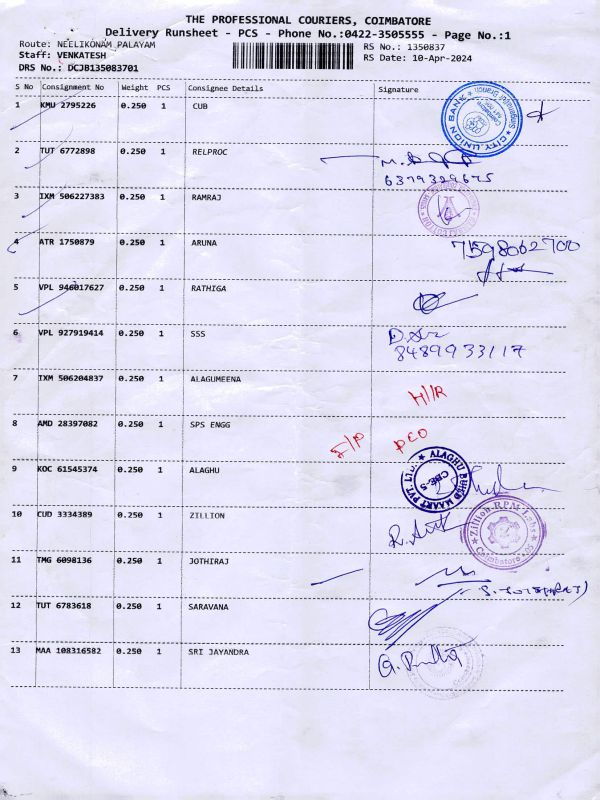 THE PROFESSIONAL COURIERS, COIMBATORE
Delivery Runsheet - PCS - Phone No.:0422-3505555 - Page No.:1
Route: NEELIKONAM PALAYAM
RS No.: 1350837
Staff: VENKATESH
RS Date: 10-Apr-2024
DRS No.: DCJB135083701
S No Consignment No Weight PCS Consignee Details Signature
1 KMU 2795226 0.250 1 CUB
CITY UNION BANK
2 TUT 6772898 0.250 1 RELPROC
6379329675
3 IXM 506227383 0.250 1 RAMRAJ
4 ATR 1750879 0.250 1 ARUNA 7598062700
5 VPL 946017627 0.250 1 RATHIGA
6 VPL 927919414 0.250 1 SSS
8489933117
7 IXM 506204837 0.250 1 ALAGUMEENA
H/R
8 AMD 28397082 0.250 1 SPS ENGG
9 KOC 61545374 0.250 1 ALAGHU
CBE-5
10 CUD 3334389 0.250 1 ZILLION
Zillion-RPM Labs
Coimbatore
11 TMG 6098136 0.250 1 JOTHIRAJ
12 TUT 6783618 0.250 1 SARAVANA
13 MAA 108316582 0.250 1 SRI JAYANDRA